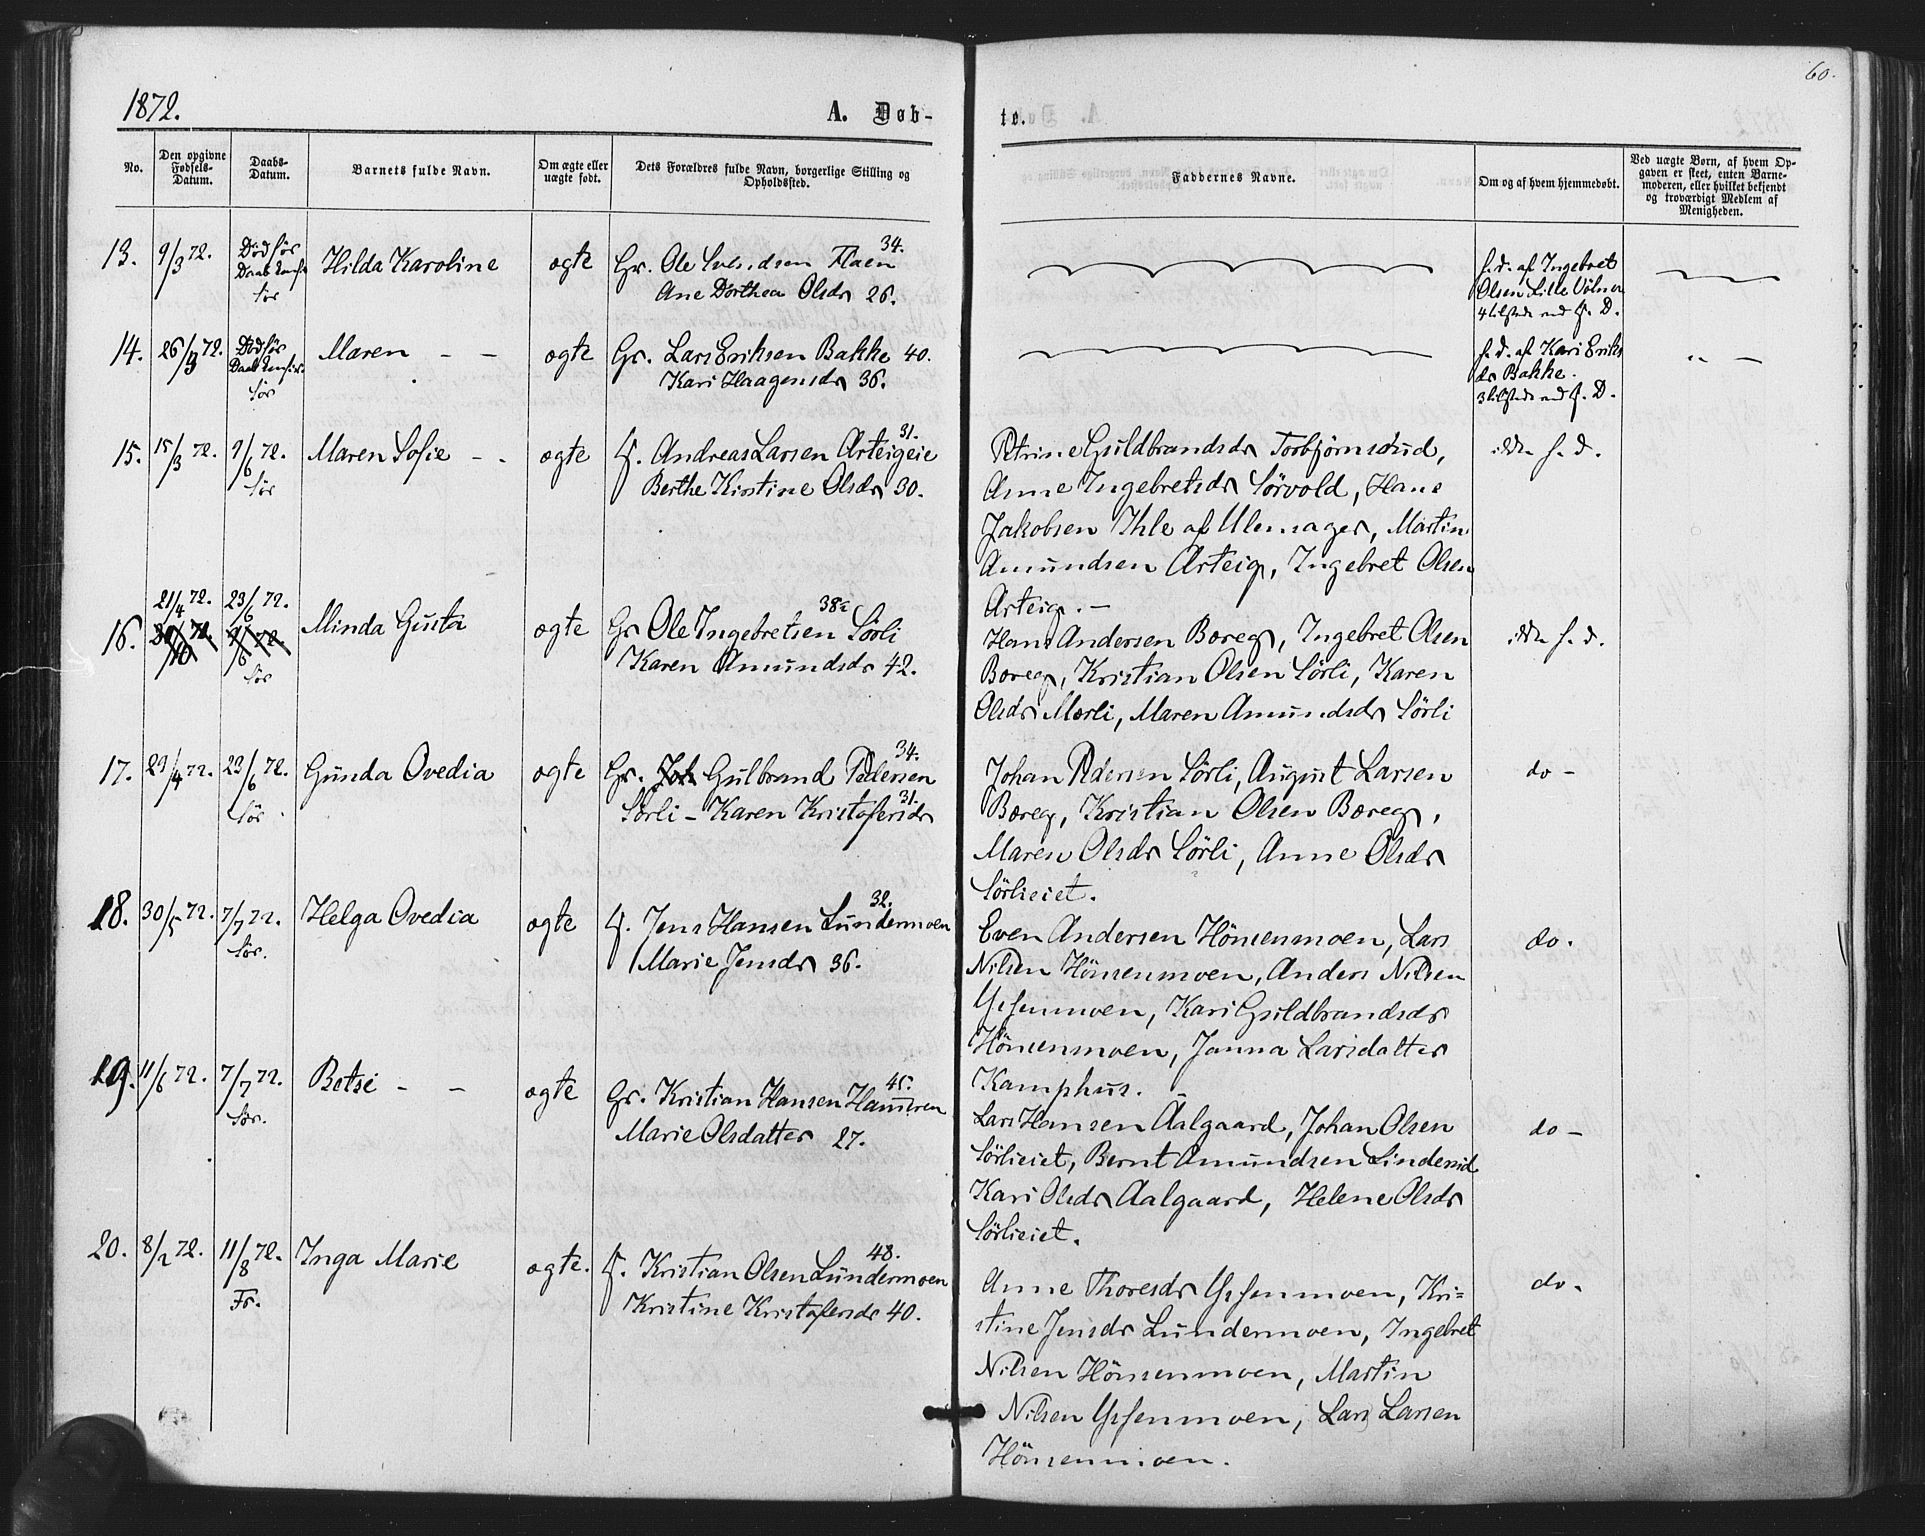 60.
1872.
A. Døb-
te.
No.
Den opgivne Fødsels-Datum.
Daabs-Datum.
Barnets fulde Navn.
Om ægte eller uægte født.
Dets Forældres fulde Navn, borgerlige Stilling og Opholdssted.
Faddernes Navne.
Om og af hvem hjemmedøbt.
Ved uægte Børn, af hvem Op-
gaven er skeet, enten Barne-
moderen, eller hvilket bekjendt
og troværdigt Medlem af
Menigheden.
13. 9/3 72. Død før Hilda Karoline ægte Gr. Ole Svendsen Flaen 34.
Ane Dorthea Olsdr 26.
h. d. af Ingebret
Olsen Lille
14. 26/3 72. Død før Maren - - ægte Gr. Lars Eriksen Bakke 40.
Kari Haagensdr 36.
h. d. af Kari Eriks
dr Bakke.
15. 15/3 72. 9/6 72. Sør Maren Sofie - - ægte Andreas Larsen Arteigeie 31.
Berthe Kirstine Olsdr 30.
Petrine Guldbrandsdr Torbjørnsrud,
Anne Ingebretsdr Sørvold, Hans
Jakobsen Ihle af Ullensager, Martin
Amundsen Arteig, Ingebret Olsen
Arteig. -
ikke h. d.
16. 21/4 72. 23/6 72. Sør Minda Gusta ægte Gr Ole Ingebretsen Sörli 38
Karen Amundsdr 42.
Hans Andersen Boreg, Ingebret Olsen
Boreg, Kristian Olsen Sörli, Karen
Olsdr Mørli, Maren Amundsdr Sörli
ikke h. d.
17. 29/4 72. 23/6 72. Sør Gunda Ovedia ægte Gr. Gulbrand Pedersen 34.
Sörli - Karen Kristofersdr 31.
Johan Pedersen Sörli, August Larsen
Boreg, Kristian Olsen Boreg,
Maren Olsdr Sörli, Anne Olsdr
Sörlieiet.
do -
18. 30/5 72. 7/7 72. Sør. Helga Ovedia ægte Jens Hansen Lundermoen 32.
Marie Jensdr 36.
Even Andersen Hönsenmoen, Lars
Nilsen Hönsenmoen, Anders Nilsen
Kari Guldbrandsdr
Hönsenmoen, Janna Larsdatter
Kamphus. -
do.
19. 11/6 72. 7/7 72. Sør. Betsi - - ægte Gr. Kristian Hansen Hammeren 45.
Marie Olsdatter 27.
Lars Hansen Aalgaard, Johan Olsen
Sörlieiet, Bernt Amundsen Linderud
Kari Olsdr Aalgaard, Helene Olsdr
Sörlieiet.
do -
20. 8/2 72. 11/8 72. Fr. Inga Marie ægte. Kristian Olsen Lundermoen 48.
Kristine Kristofersdr 40.
Anne Thoresdr Kri=
stine Jensdr Lundermoen, Ingebret
Nilsen Hönsenmoen, Martin
Nilsen Lars Larsen
Hönsenmoen.
do.